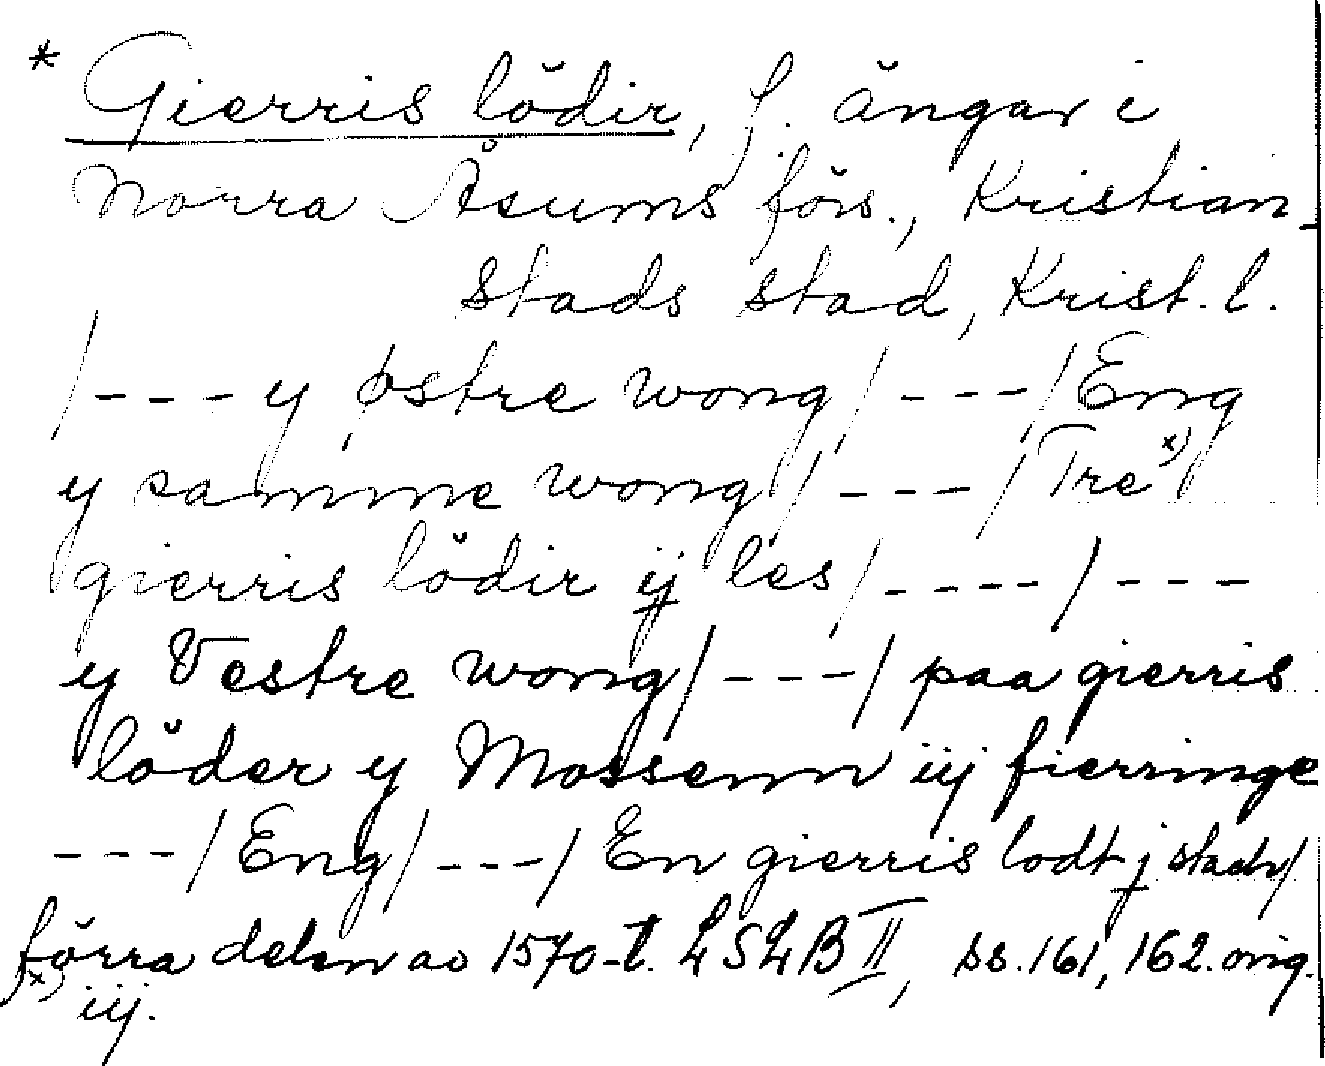 * Gierris lödir, f. ängar i
Norra Åsums förs., Kristian-
stads stad, Krist. l.
/---y østre wong/---/Eng
y samme wong/---/Tre x)
gierris lödir ij les/----/---
y Vestre wong/---/ paa gierris
löder y Mossenn iij fierringe
---/Eng/---/En gierris lodt j stadt/
förra delen av 1570-t. LSLB II, ss. 161, 162. orig.
x) iij.